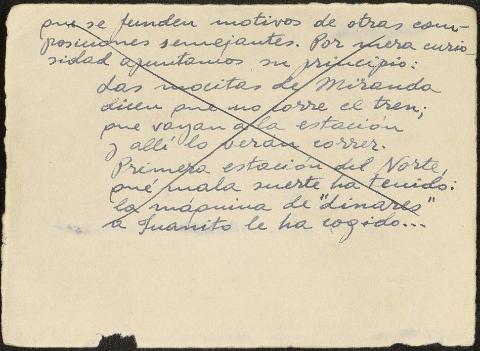 que se funden motivos de otras com-
posiciones semejantes. Por mera curio-
sidad apuntamos su principio:
Las mocitas de Miranda
dicen que no corre el tren;
que vayan a la estación
y allí lo verán correr.
Primera estación del Norte,
qué mala suerte ha tenido:
la máquina de "Linares"
a Juanito le ha cogido...